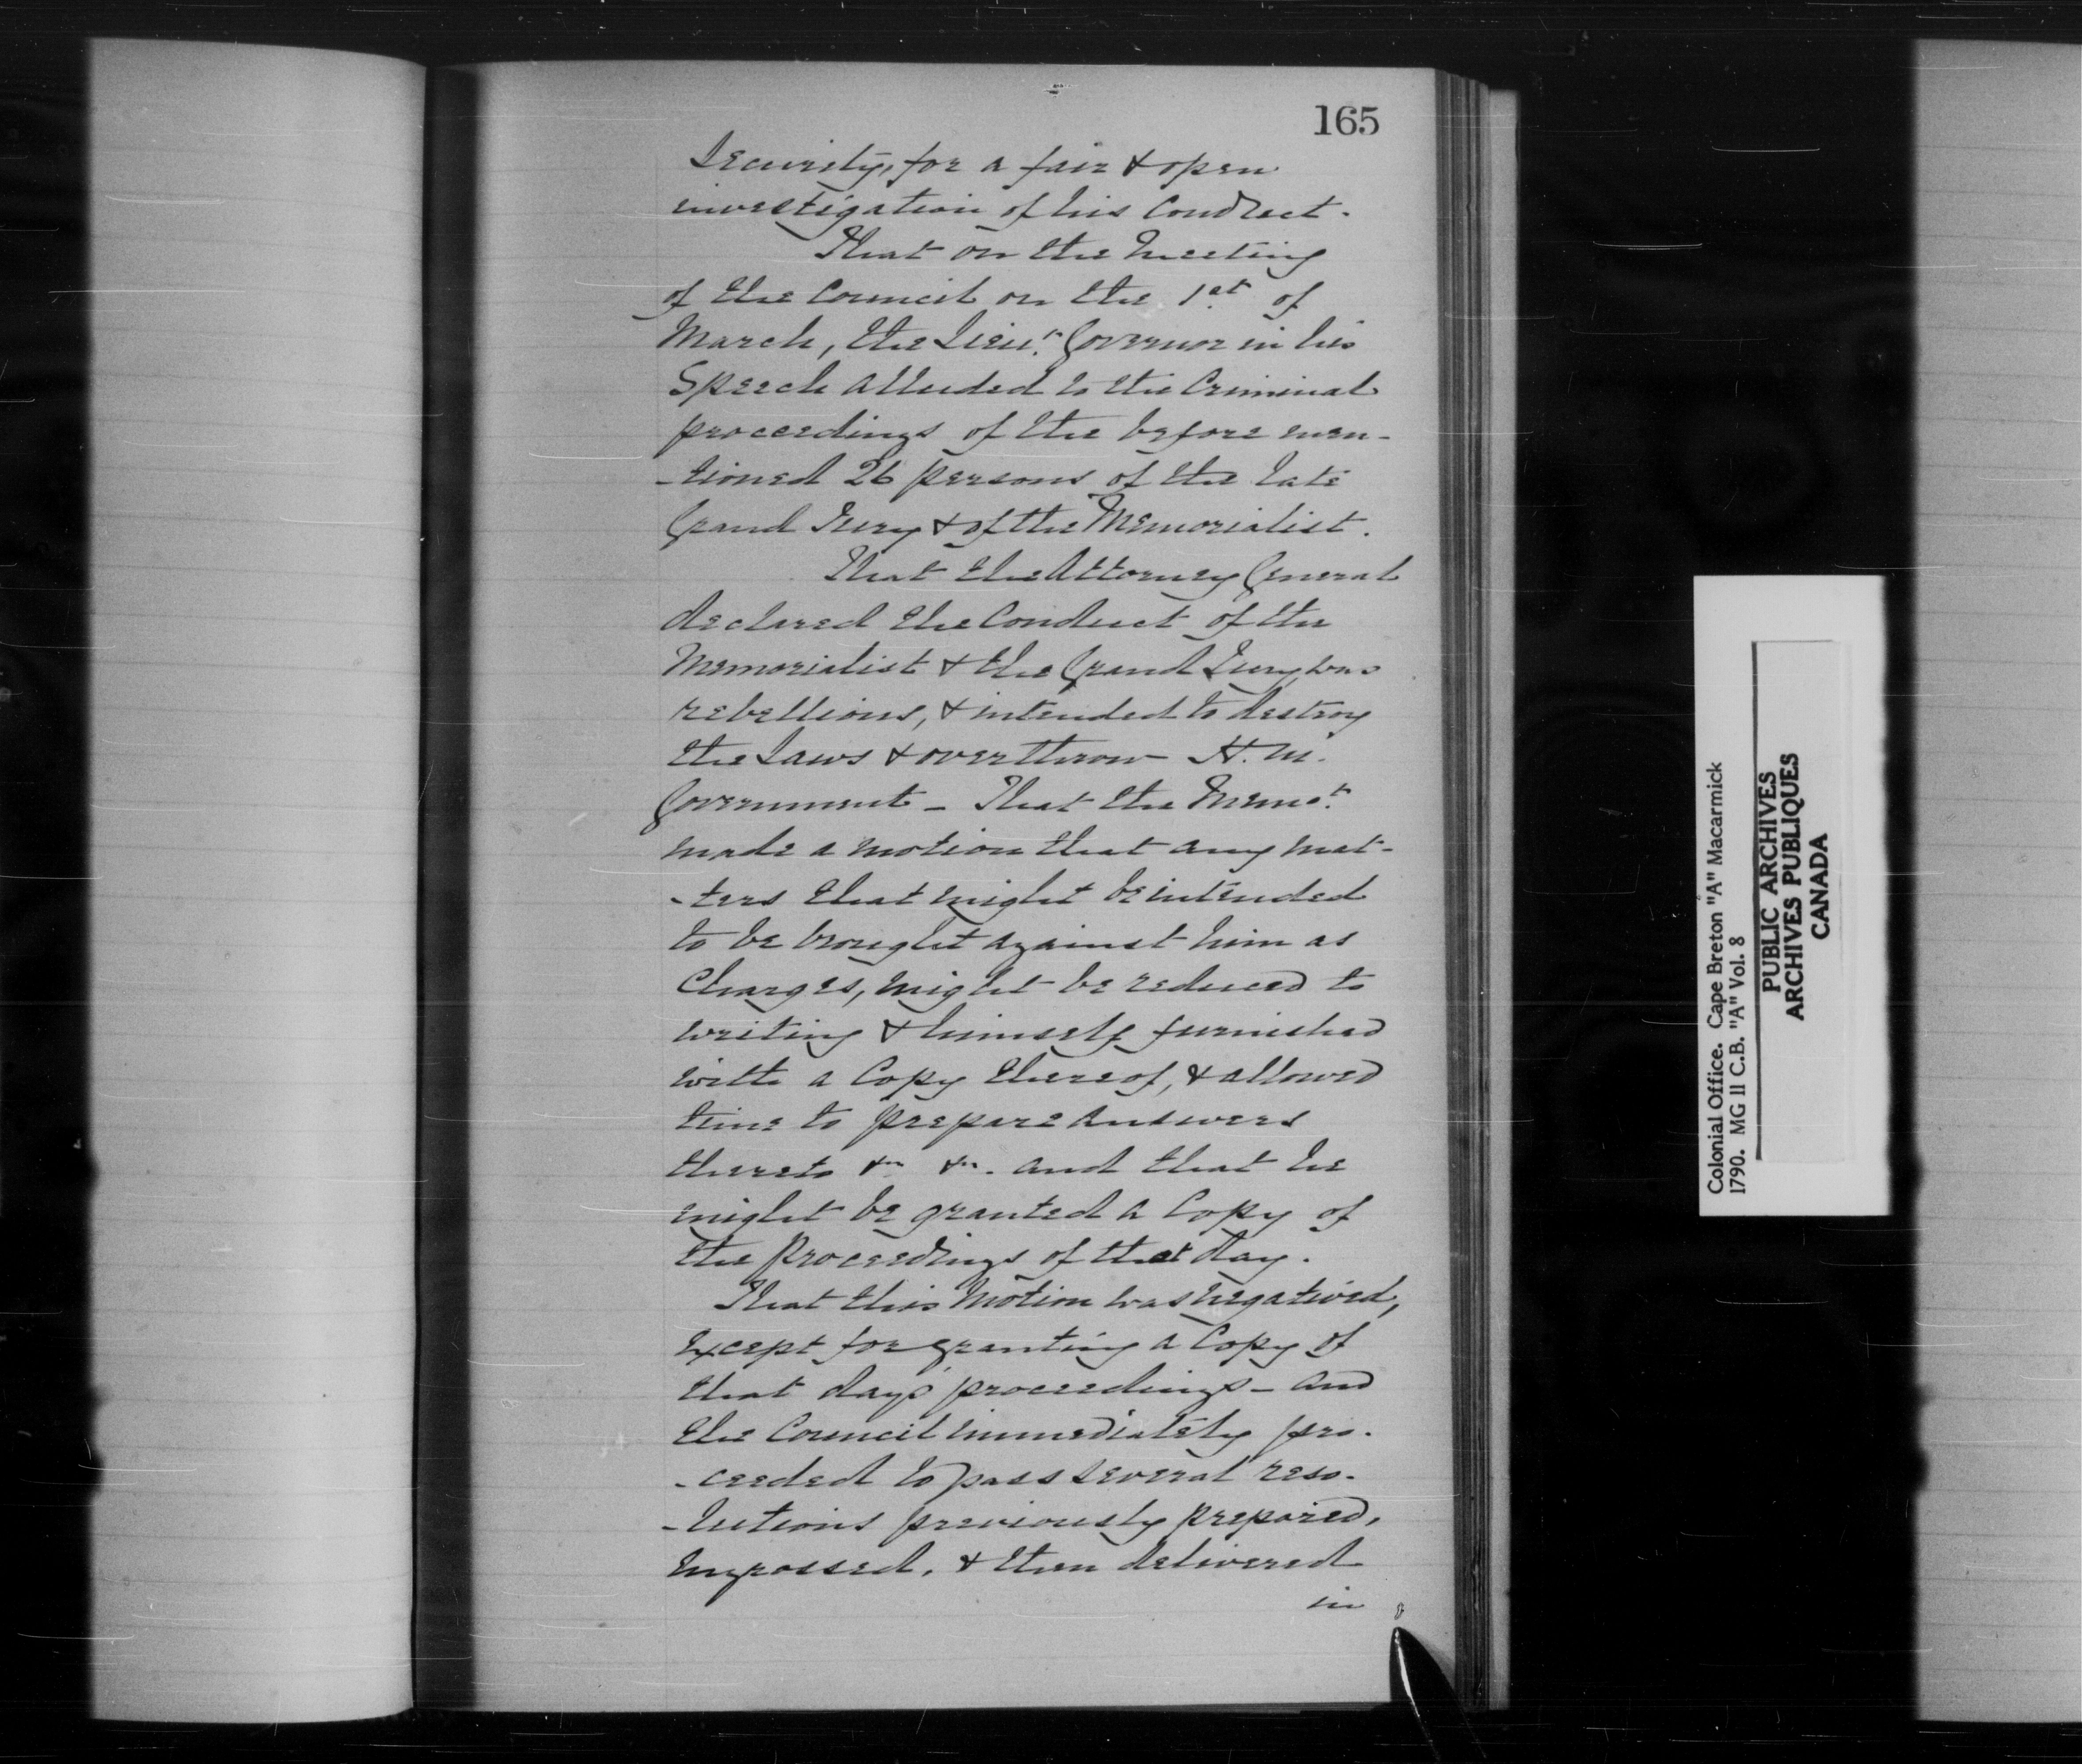 165
Security, for a fair & open
investigation of his Conduct.
That on the meeting
of the Council on the 1st of
March, the Lieut. Governor in his
Speech alluded to the Criminal
proceedings of the before men-
-tioned 26 persons of the late
Grand Jury & of the Memorialist.
That the Attorney General
declared the Conduct of the
Memorialist & the Grand Jury was
rebellious, & intended to destroy
the Laws & overthrow H. M.
Government - That the Memot.
made a motion that any mat-
-ters that might be intended
to be brought against him as
Charges, might be reduced to
writing & himself furnished
with a Copy thereof, & allowed
time to prepare answers
thereto &c. &c. and that he
might be granted a Copy of
the Proceedings of that day.
That this Motion was negatived,
except for granting a Copy of
that days proceedings - and
the Council immediately pro-
-ceeded to pass several reso-
-lutions previously prepared,
Engrossed, & then delivered
in
Colonial Office. Cape Breton "A" Macarmick
1790. MG 11 C.B. "A" Vol. 8
PUBLIC ARCHIVES
ARCHIVES PUBLIQUES
CANADA